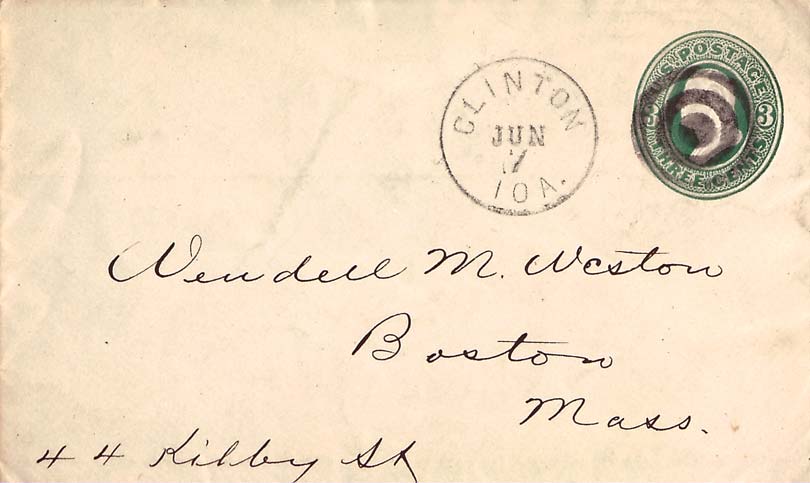 U.S. POSTAGE
3 3
THREE CENTS
CLINTON
JUN
17
IOA.
Wendell M. Weston
Boston
Mass.
44 Kilby St